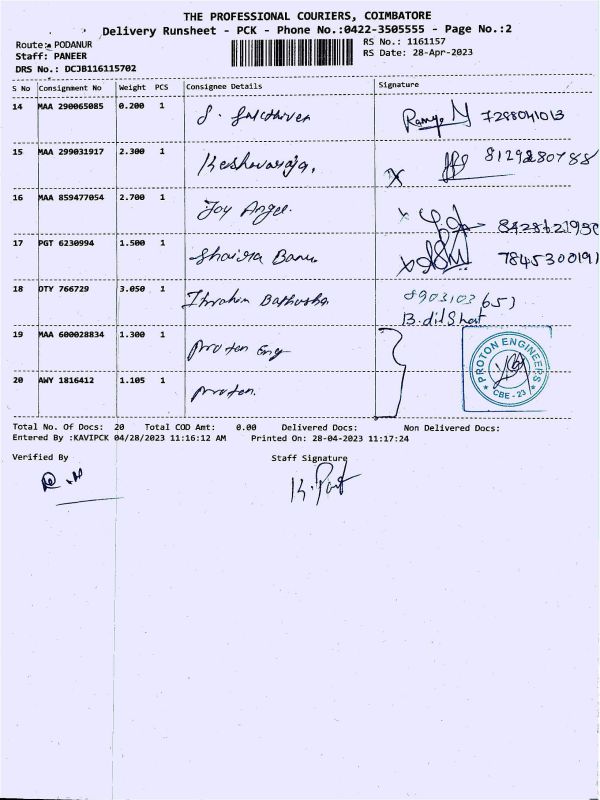 THE PROFESSIONAL COURIERS, COIMBATORE
Delivery Runsheet - PCK - Phone No.:0422-3505555 - Page No.:2
Route: PODANUR
Staff: PANEER
DRS No.: DCJB116115702
RS No.: 1161157
RS Date: 28-Apr-2023
S No Consignment No Weight PCS Consignee Details Signature
14 MAA 290065085 0.200 1 S. Ramya 7288041013
15 MAA 299031917 2.300 1 Keshavaraja, X 8129280788
16 MAA 859477054 2.700 1 Joy Angel. x
17 PGT 6230994 1.500 1 Shaidra Banu x 7845300191
18 OTY 766729 3.050 1 Ibrahim Bathusha 8903103651
B. dilshat
19 MAA 600028834 1.300 1 Proton Eng
20 AWY 1816412 1.105 1 Proton.
PROTON ENGINEERS
CBE - 23
Total No. Of Docs: 20 Total COD Amt: 0.00 Delivered Docs: Non Delivered Docs:
Entered By :KAVIPCK 04/28/2023 11:16:12 AM Printed On: 28-04-2023 11:17:24
Verified By Staff Signature